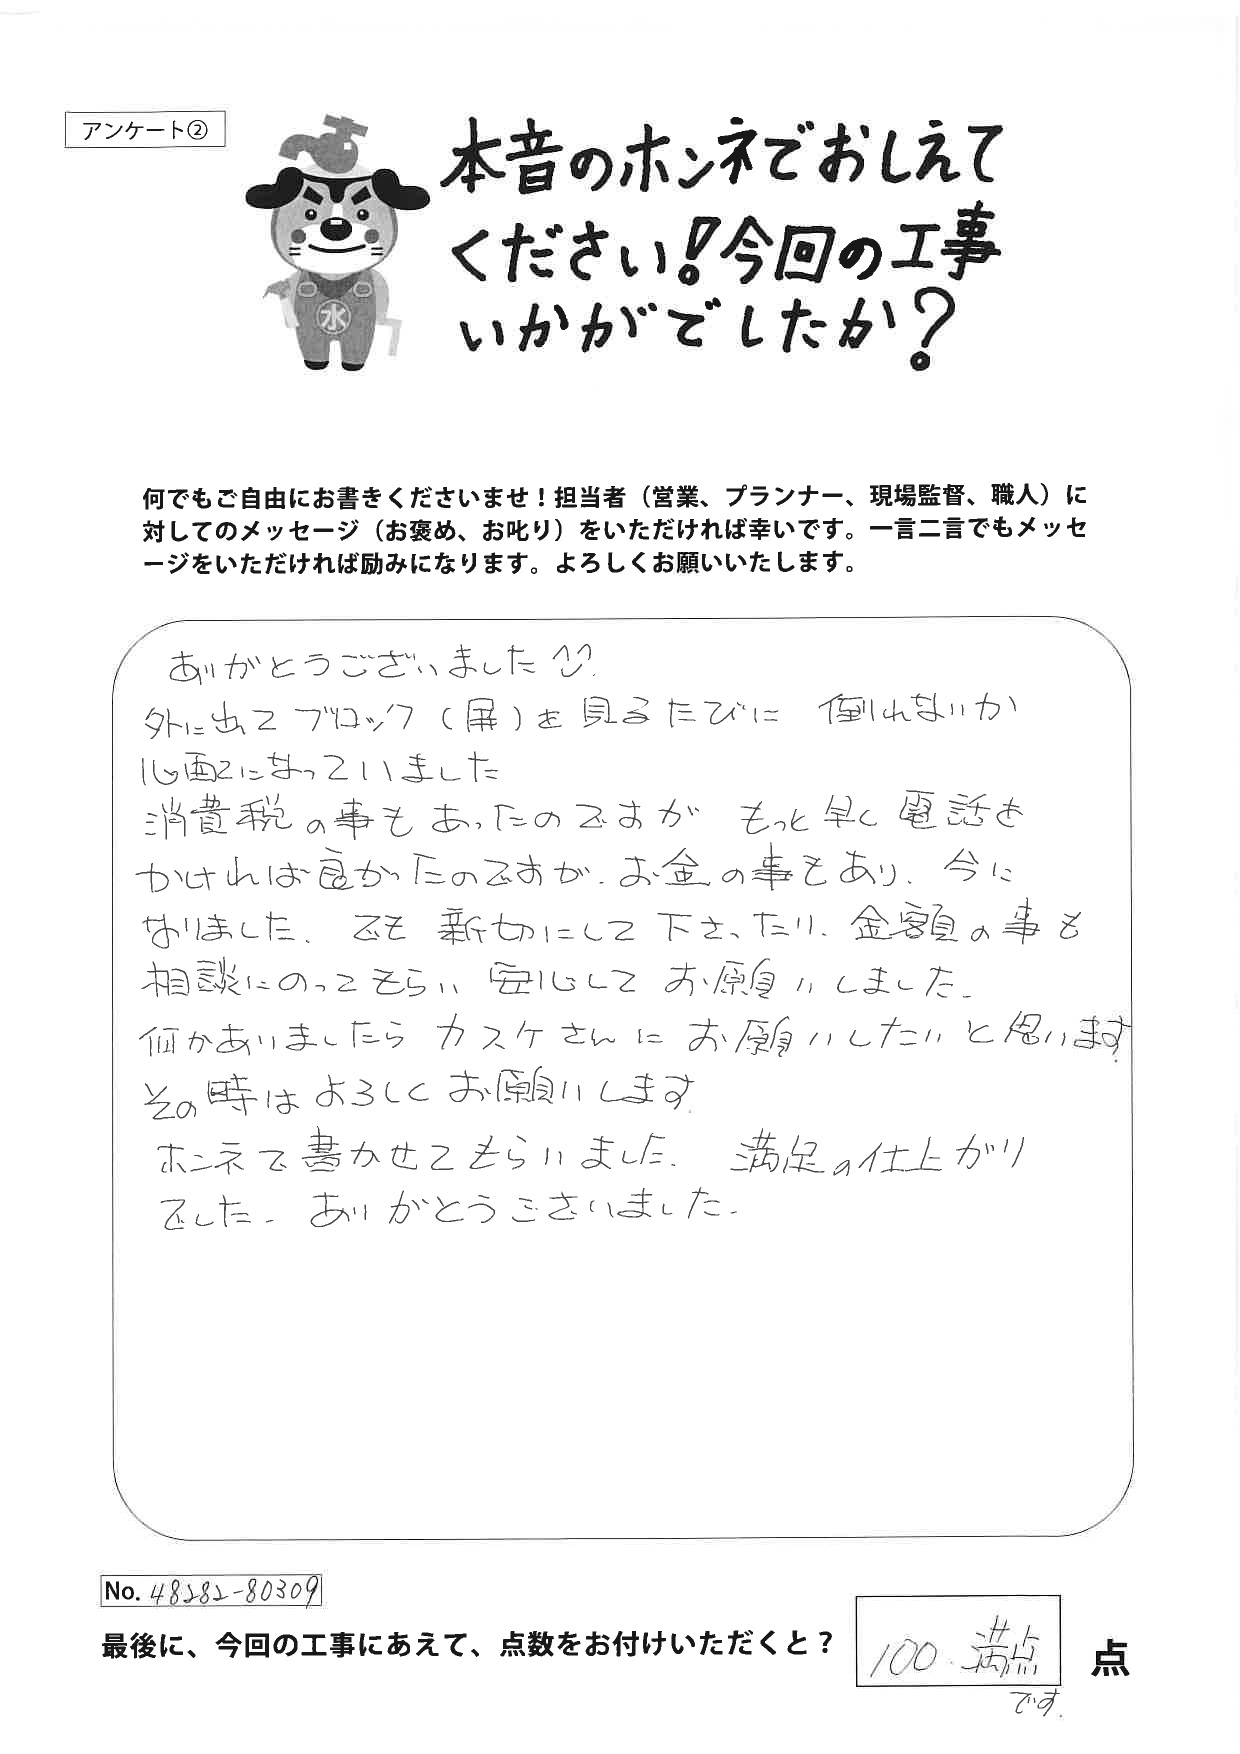 アンケート②
本音のホンネでおしえて
ください!今回の工事
いかがでしたか?
水
何でもご自由にお書きくださいませ！担当者（営業、プランナー、現場監督、職人）に
対してのメッセージ（お褒め、お叱り）をいただければ幸いです。一言二言でもメッセ
ージをいただければ励みになります。よろしくお願いいたします。
ありがとうございました
外に出て ブロック（屏）を 見るたびに 倒れないか
心配になっていました
消費税の事もあったのですが もっと早く電話を
かければ良かったのですが、お金の事もあり、今に
なりました、でも 新切にして下さったり、金額の事も
相談にのってもらい 安心して お願いしました。
何かありましたら カスケさんに お願いしたいと思います
その時は よろしく お願いします
ホンネで書かせてもらいました、満足の仕上がり
でした。ありがとうございました。
No. 48282-80309
最後に、今回の工事にあえて、点数をお付けいただくと？
100.満点 点
です.